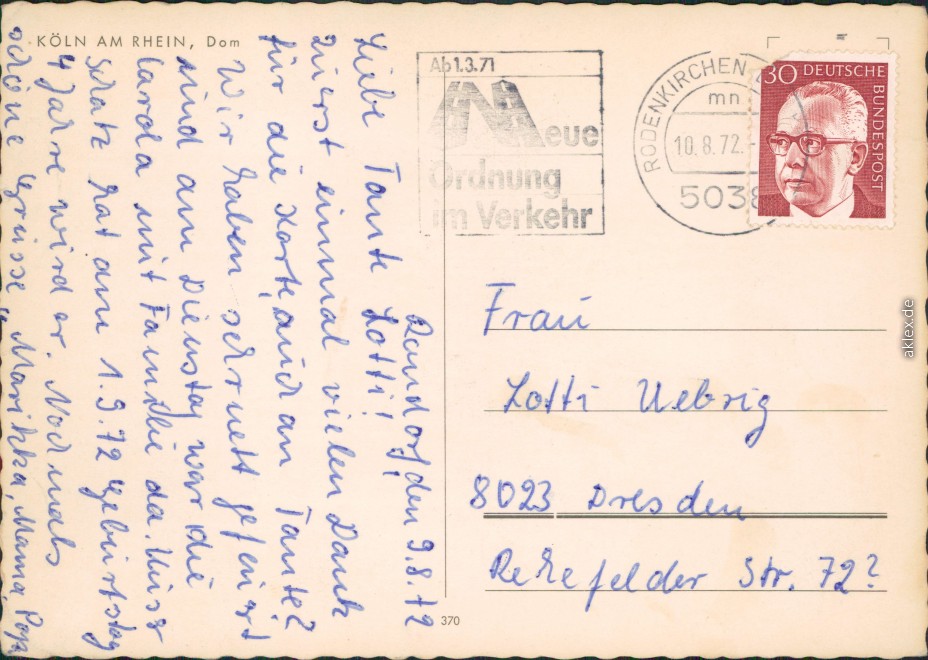 KÖLN AM RHEIN, Dom
Rondorf, den 9.8.72
Liebe Tante Lotti!
Zuerst einmal vielen Dank
für die Karte, auch an Tante?
Wir haben sehr nett gefeiert
sind am Dienstag war die
mit Familie da. Unser
Schatz hat am 1.9.72 Geburtstag
4 Jahre wird er. Nochmals
schöne Grüsse Marikka, Mama, Papa
Ab 1.3.71
Neue
Ordnung
im Verkehr
RODENKIRCHEN
mn
10.8.72.-
5038
30 DEUTSCHE
BUNDESPOST
Frau
Lotti Uebrig
8023 Dresden
Rehefelder Str. 72?
370
aklex.de